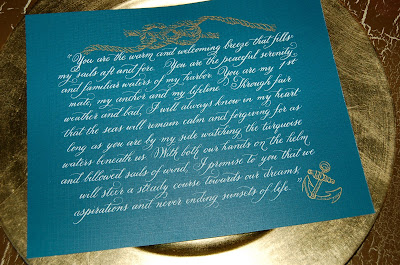 "You are the warm and welcoming breeze that fills
my sails aft and fore. You are the peaceful serenity
and familiar waters of my harbor. You are my 1st
mate, my anchor and my lifeline. Through fair
weather and bad, I will always know in my heart
that the seas will remain calm and forgiving for as
long as you are by my side watching the turquoise
waters beneath us. With both our hands on the helm
and billowed sails of wind, I promise to you that we
will steer a steady course towards our dreams,
aspirations and never ending sunsets of life.